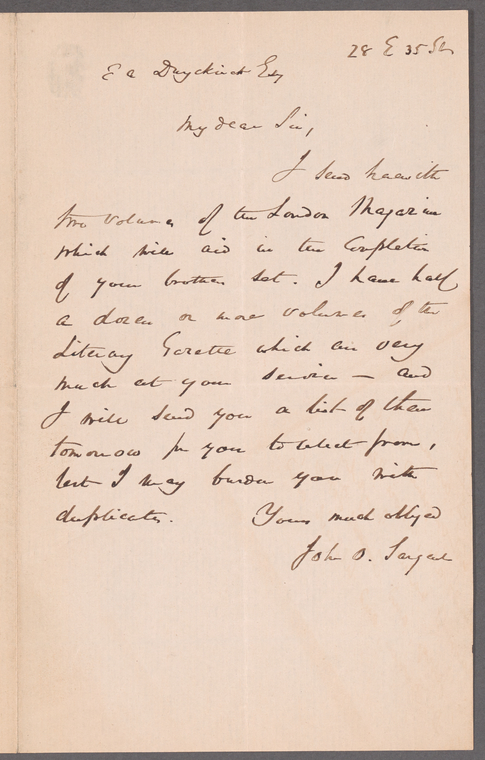 28 E 35 St
E A Duyckinck Esq
My dear Sir,
I send herewith
two volumes of the London Magazine
which will aid in the completion
of your brothers set. I have half
a dozen or more volumes of the
Literary Gazette which are very
much at your service — and
I will send you a list of them
tomorrow for you to select from,
lest I may burden you with
duplicates. Yours much obliged
John O. Sargent